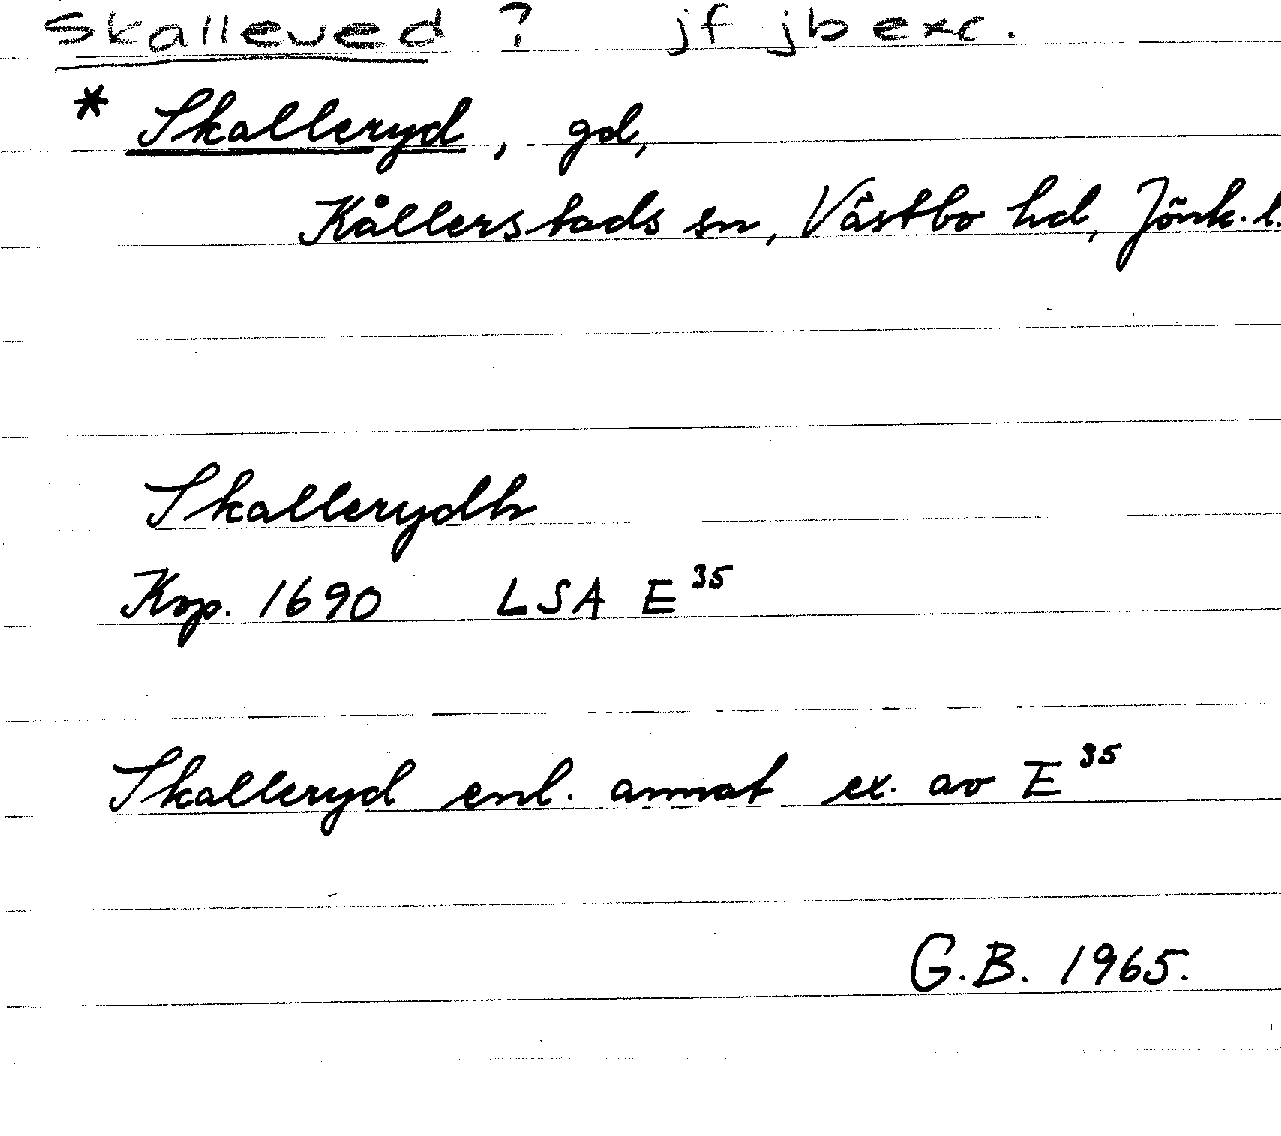 Skalleved ? jf jb exc.
* Skalleryd, gd,
Kållerstads sn, Västbo hd, Jönk. l.
Skallerydh
Kop. 1690 LSA E³⁵
Skalleryd enl. annat ex. av E³⁵
G.B. 1965.